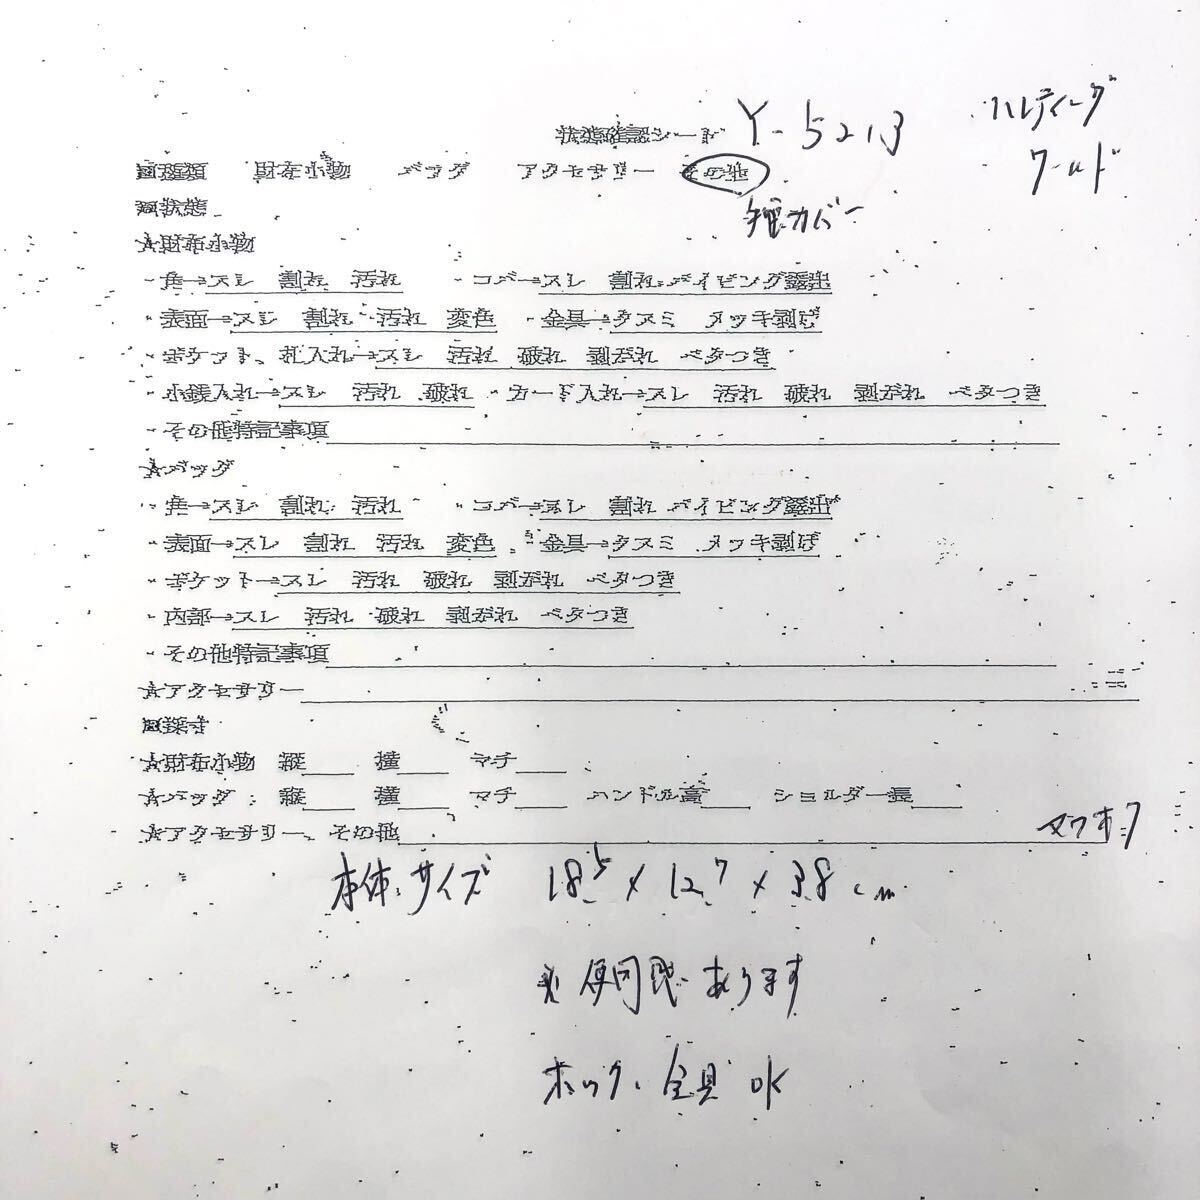 状態確認シート Y-5213
ハンティング
ワールド
■種類 財布小物 バッグ アクセサリー その他
■状態 手帳カバー
★財布小物
・角→スレ 割れ 汚れ ・コバ→スレ 割れ パイピング露出
・表面→スレ 割れ 汚れ 変色 ・金具→クスミ メッキ剥げ
・ポケット、札入れ→スレ 汚れ 破れ 剥がれ ベタつき
・小銭入れ→スレ 汚れ 破れ ・カード入れ→スレ 汚れ 破れ 剥がれ ベタつき
・その他特記事項
★バッグ
・角→スレ 割れ 汚れ ・コバ→スレ 割れ パイピング露出
・表面→スレ 割れ 汚れ 変色 ・金具→クスミ メッキ剥げ
・ポケット→スレ 汚れ 破れ 剥がれ ベタつき
・内部→スレ 汚れ 破れ 剥がれ ベタつき
・その他特記事項
★アクセサリー
■採寸
★財布小物 縦 横 マチ
★バッグ: 縦 横 マチ ハンドル高 ショルダー長
★アクセサリー、その他
本体サイズ 18.5 × 12.7 × 3.8 cm
※ 使用感 あります
ホック、金具 OK